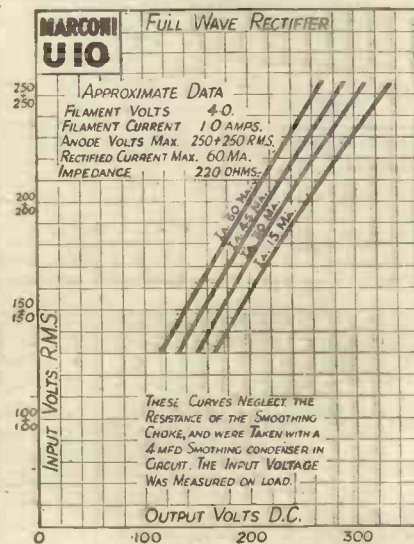 MARCONI
U 10
FULL WAVE RECTIFIER
APPROXIMATE DATA
FILAMENT VOLTS 4·0.
FILAMENT CURRENT 1·0 AMPS.
ANODE VOLTS MAX. 250+250 RMS.
RECTIFIED CURRENT MAX. 60 MA.
IMPEDANCE 220 OHMS.
250
250
200
200
150
150
100
100
INPUT VOLTS R.M.S.
IA. 60 MA.
IA. 45 MA.
IA. 30 MA.
IA. 15 MA.
THESE CURVES NEGLECT THE
RESISTANCE OF THE SMOOTHING
CHOKE, AND WERE TAKEN WITH A
4 MFD SMOTHING CONDENSER IN
CIRCUIT. THE INPUT VOLTAGE
WAS MEASURED ON LOAD.
OUTPUT VOLTS D.C.
0 100 200 300